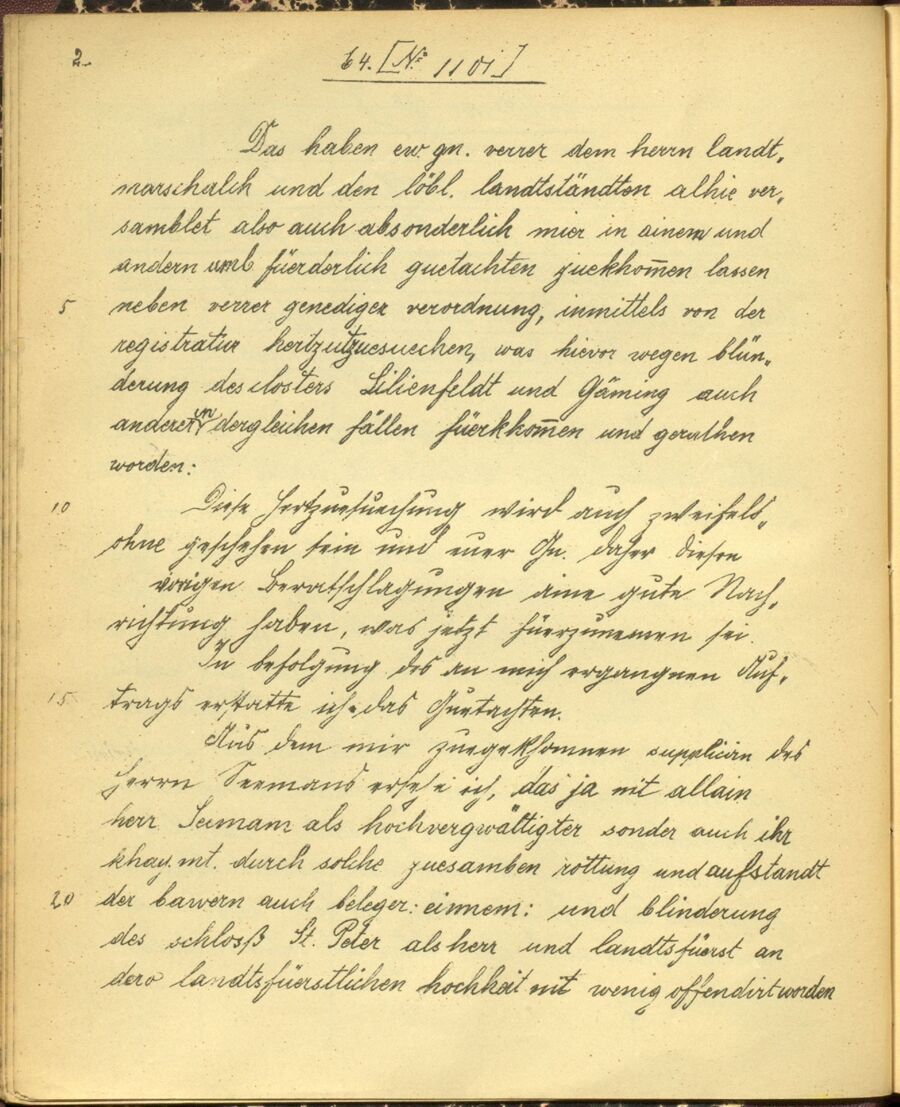 2.
64. [No 1101]
Das haben ew. gn. verrer dem herrn landt„
marschalch und den löbl. landtständten alhie ver„
samblet also auch absonderlich mier in ainem und
andern umb füerderlich guetachten zuekhom̅en lassen
5 neben verrer genediger verordnung, inmittels von der
registratur hertzutzuesuechen, was hievor wegen blün„
derung des closters Lilienfeldt und Gäming auch
anderer in dergleichen fällen füerkhom̅en und gerathen
worden:
10 Diese hertzuesuechung wird auch zweifels„
ohne geschehen sein und euer Gn. daher diesen
vorigen Beratschlagungen aine gute Nach„
richtung haben, was jetzt füerzunemen sei.
In befolgung des an mich ergangnen Auf„
15 trags erstatte ich das Guetachten.
Aus dem mir zuegekhomnen supplicirn des
Herrn Seemans ersehe ich, das ja nit allain
herr Seemam als hochvergwältigter sonder auch ihr
khay. mt. durch solche zuesamben rottung und aufstandt
20 der bawern auch beleger: einnem: und blinderung
des schloß St. Peter als herr und landtsfüerst an
dero landtsfüerstlichen hochheit nit wenig offendirt worden